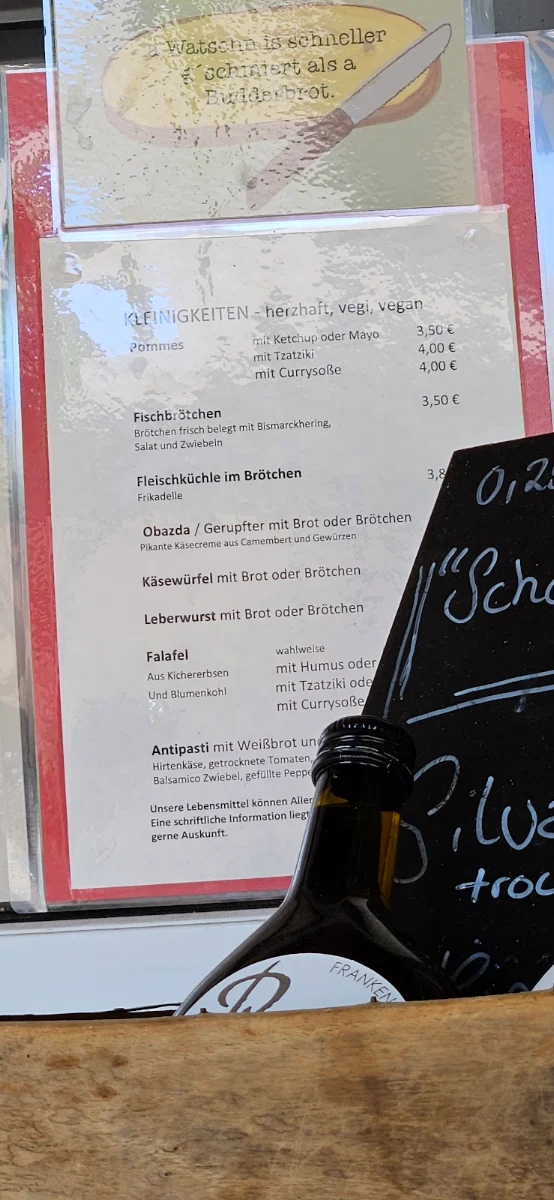 a Watschn is schneller
g'schmiert als a
Budderbrot.
KLEINIGKEITEN - herzhaft, vegi, vegan
Pommes mit Ketchup oder Mayo 3,50 €
mit Tzatziki 4,00 €
mit Currysoße 4,00 €
Fischbrötchen 3,50 €
Brötchen frisch belegt mit Bismarckhering,
Salat und Zwiebeln
Fleischküchle im Brötchen 3,8
Frikadelle
Obazda / Gerupfter mit Brot oder Brötchen
Pikante Käsecreme aus Camembert und Gewürzen
Käsewürfel mit Brot oder Brötchen
Leberwurst mit Brot oder Brötchen
Falafel wahlweise
Aus Kichererbsen mit Humus oder
Und Blumenkohl mit Tzatziki ode
mit Currysoße
Antipasti mit Weißbrot un
Hirtenkäse, getrocknete Tomaten,
Balsamico Zwiebel, gefüllte Peppe
Unsere Lebensmittel können Aller
Eine schriftliche Information liegt
gerne Auskunft.
0,25
"Scho
Silva
troc
FRANKEN